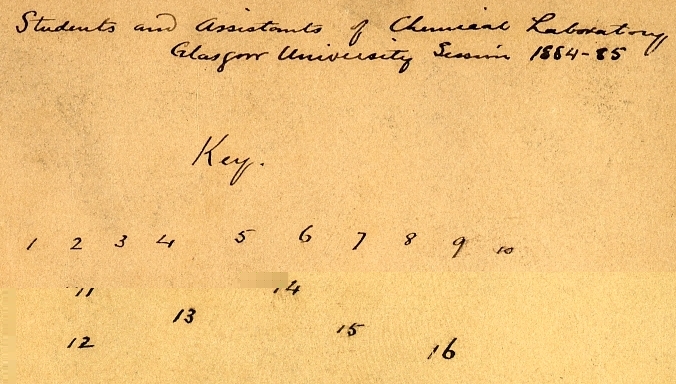 Students and Assistants of Chemical Laboratory,
Glasgow University Session 1884-85
Key.
1 2 3 4 5 6 7 8 9 10
11 14
13
15
12 16